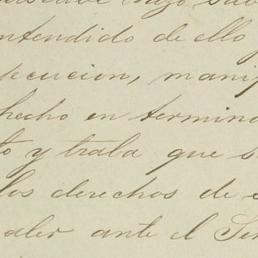 ntendido de ello
ecucion, manif
hecho en termino
to y traba que s
los derechos de e
aler ante el Señ